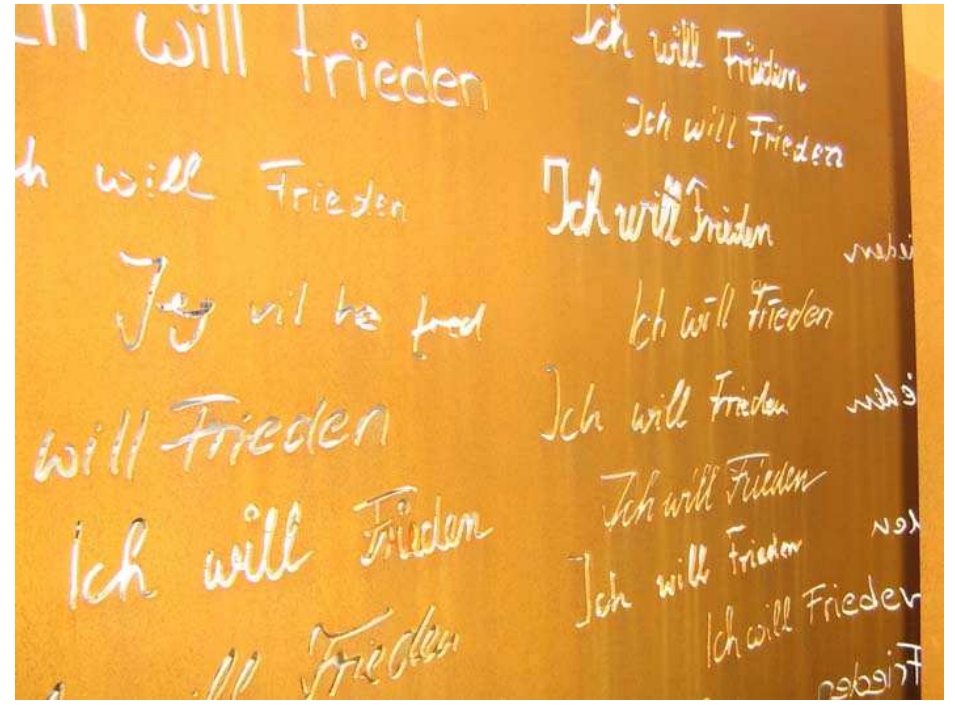 ch will Frieden
h will Frieden
Jeg vil ha fred
will Frieden
Ich will Frieden
will Frieden
Ich will Frieden
Ich will Frieden
Ich will Frieden
Ich will Frieden
Ich will Frieden
Ich will Frieden
Ich will Frieden
Ich will Frieden
Frieden